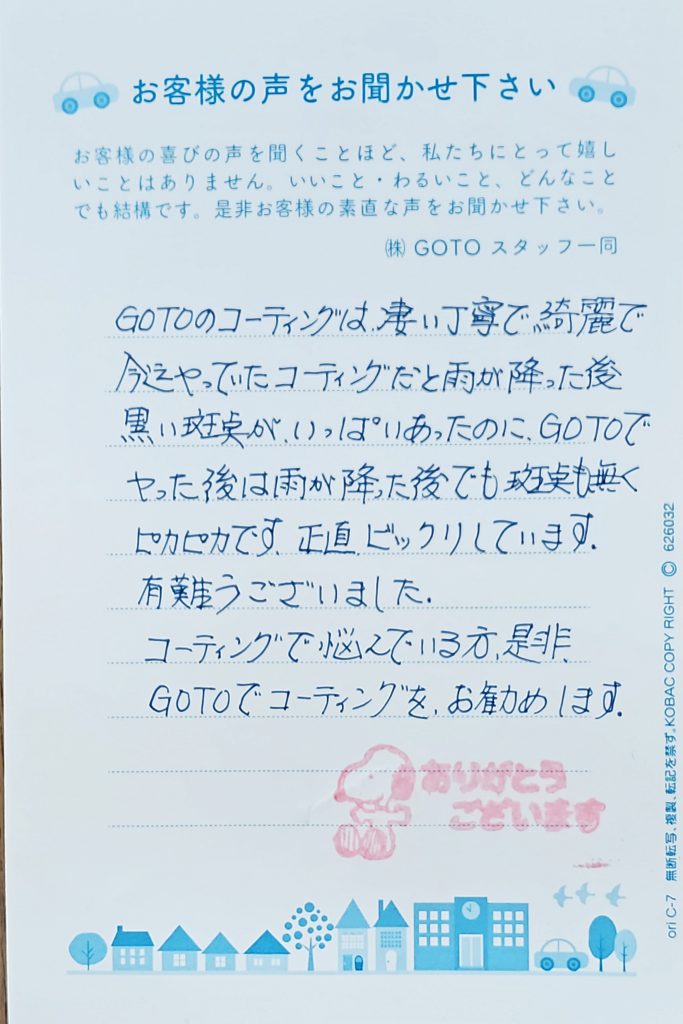 お客様の声をお聞かせ下さい
お客様の喜びの声を聞くことほど、私たちにとって嬉し
いことはありません。いいこと・わるいこと、どんなこと
でも結構です。是非お客様の素直な声をお聞かせ下さい。
㈱ GOTO スタッフ一同
GOTOのコーティングは、凄い丁寧で、綺麗で
今迄やっていたコーティングだと雨が降った後
黒い斑点が、いっぱいあったのに、GOTOで
やった後は雨が降った後でも斑点も無く
ピカピカです。正直、ビックリしています。
有難うございました。
コーティングで悩んでいる方、是非、
GOTOでコーティングを、お勧めします。
ありがとう
ございます
ori C-7 無断転写、複製、転記を禁ず。KOBAC COPY RIGHT © 626032